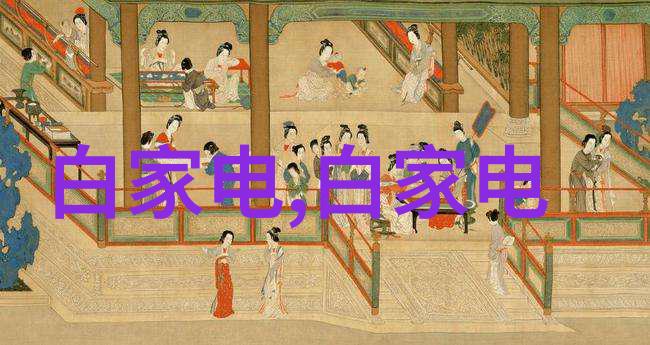 白家电,白家电